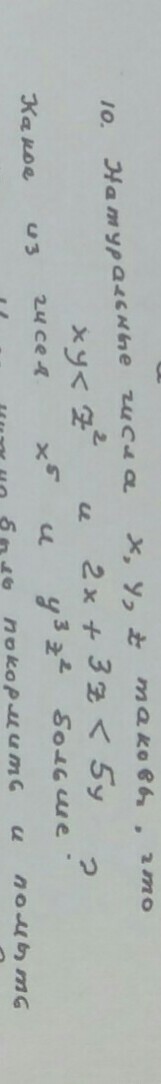 10. Натуральные числа x, y, z таковы, что
xy < z² и 2x + 3z < 5y
Какое из чисел x⁵ и y³z² больше?
быль покормить и помыть